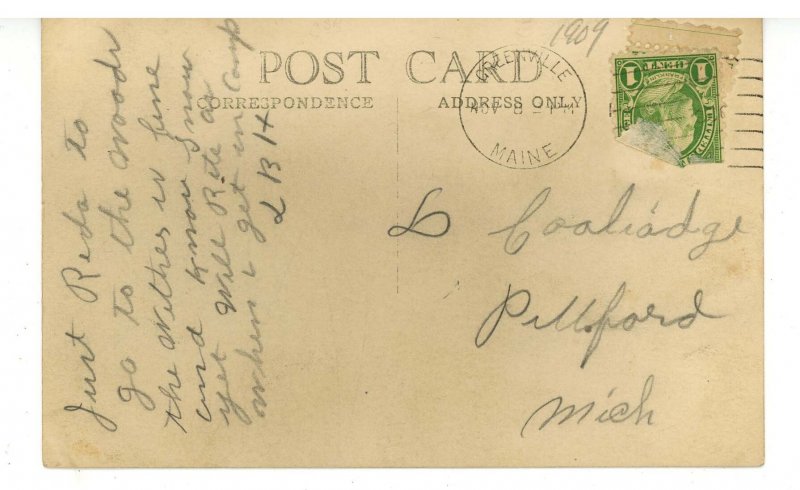 1909
POST CARD
CORRESPONDENCE
ADDRESS ONLY
GREENVILLE
NOV 8
MAINE
1
1
Just Reda to
go to the woods
the Wether is fine
and know snow
yet Will Rite as
when i get in Camp
L B H
D Cooliadge
Pillford
Mich